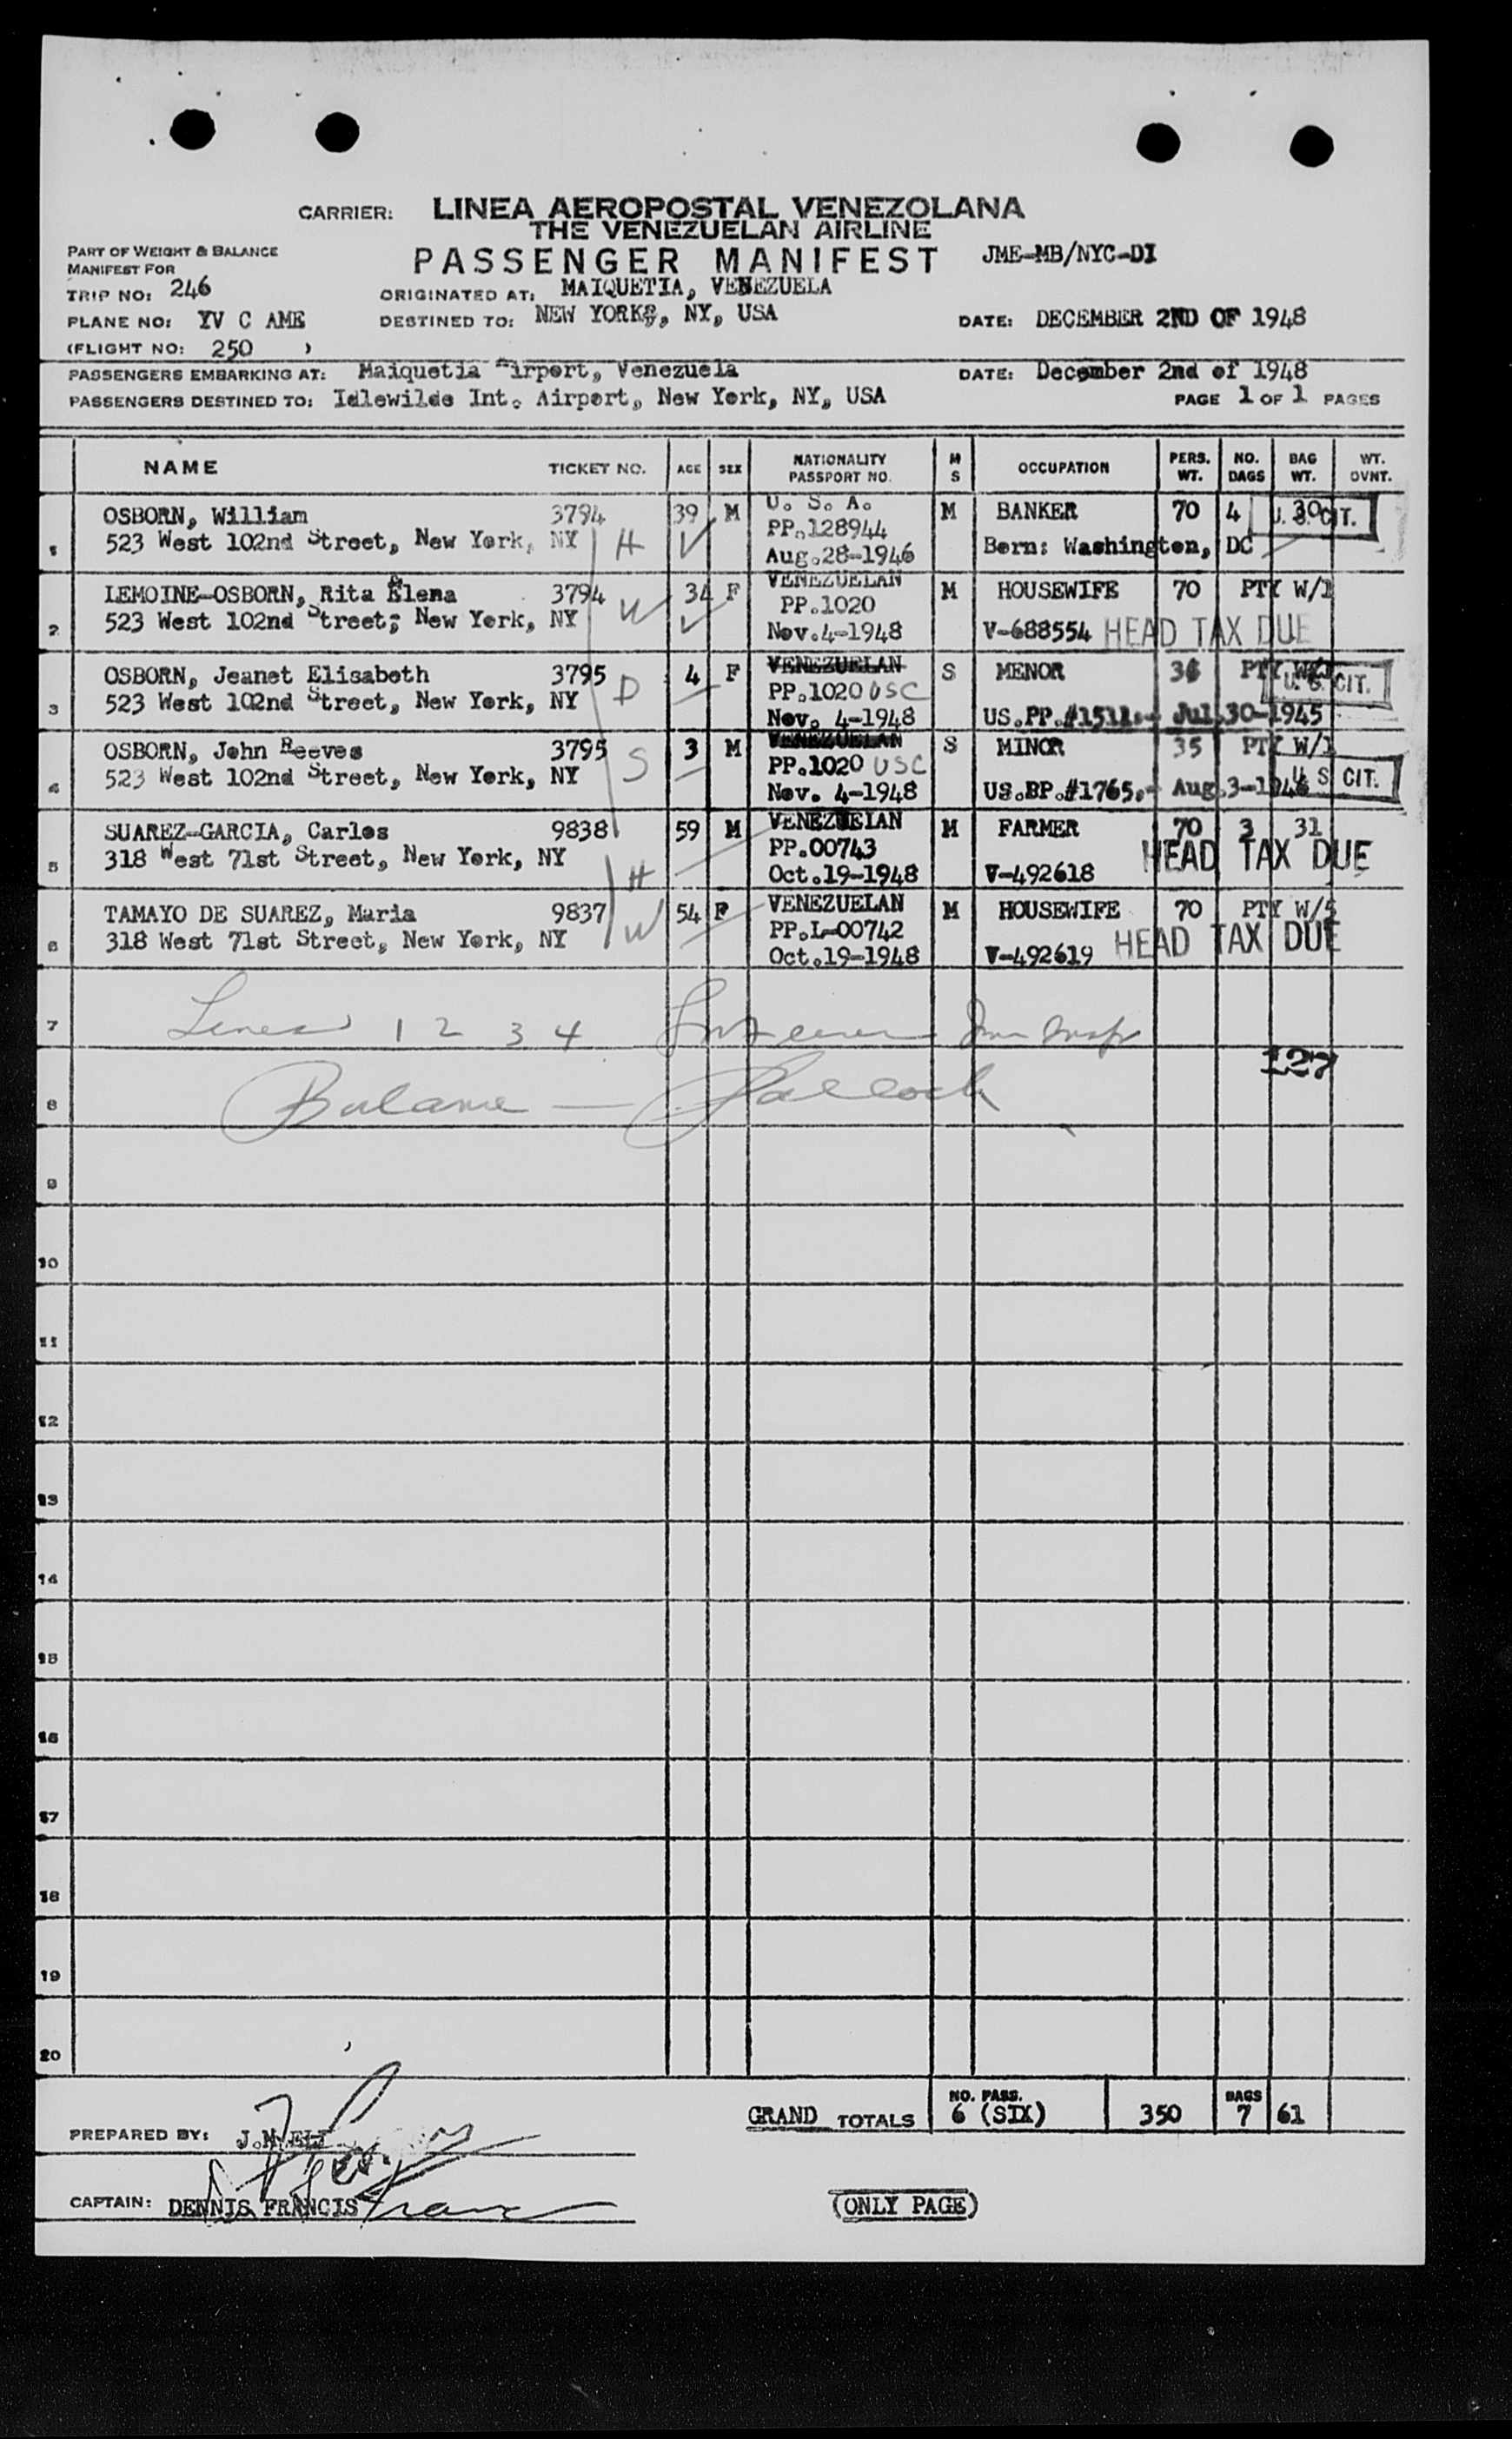 CARRIER: LINEA AEROPOSTAL VENEZOLANA
THE VENEZUELAN AIRLINE
PASSENGER MANIFEST JME-MB/NYC-DI
PART OF WEIGHT & BALANCE
MANIFEST FOR
TRIP NO: 246 ORIGINATED AT: MAIQUETIA, VENEZUELA
PLANE NO: YV C AME DESTINED TO: NEW YORK, NY, USA DATE: DECEMBER 2ND OF 1948
(FLIGHT NO: 250 )
PASSENGERS EMBARKING AT: Maiquetia Airport, Venezuela DATE: December 2nd of 1948
PASSENGERS DESTINED TO: Idlewilde Int. Airport, New York, NY, USA PAGE 1 OF 1 PAGES
NAME TICKET NO. AGE SEX NATIONALITY PASSPORT NO. M S OCCUPATION PERS. WT. NO. BAGS BAG WT. WT. OVNT.
OSBORN, William 3794 39 M U. S. A. M BANKER 70 4 30 U. S. CIT.
1 523 West 102nd Street, New York, NY H PP.128944 Born: Washington, DC
Aug.28-1946
LEMOINE-OSBORN, Rita Elena 3794 34 F VENEZUELAN M HOUSEWIFE 70 PTY W/1
2 523 West 102nd Street; New York, NY W PP.1020
Nov.4-1948 V-688554 HEAD TAX DUE
OSBORN, Jeanet Elisabeth 3795 4 F VENEZUELAN S MENOR 34 PTY W/1
3 523 West 102nd Street, New York, NY D PP.1020 USC U. S. CIT.
Nov. 4-1948 US.PP.#1511.- Jul.30-1945
OSBORN, John Reeves 3795 3 M VENEZUELAN S MINOR 35 PTY W/1
4 523 West 102nd Street, New York, NY S PP.1020 USC U. S. CIT.
Nov. 4-1948 US.PP.#1765.- Aug.3-1946
SUAREZ-GARCIA, Carlos 9838 59 M VENEZUELAN M FARMER 70 3 31
5 318 West 71st Street, New York, NY H PP.00743 HEAD TAX DUE
Oct.19-1948 V-492618
TAMAYO DE SUAREZ, Maria 9837 54 F VENEZUELAN M HOUSEWIFE 70 PTY W/5
6 318 West 71st Street, New York, NY W PP.L-00742 HEAD TAX DUE
Oct.19-1948 V-492619
7 Lines 1 2 3 4 Imm Insp
127
8 Balance —
9
10
11
12
13
14
15
16
17
18
19
20
GRAND TOTALS NO. PASS. 6 (SIX) 350 BAGS 7 61
PREPARED BY: J.M.
CAPTAIN: DENNIS FRANCIS
(ONLY PAGE)